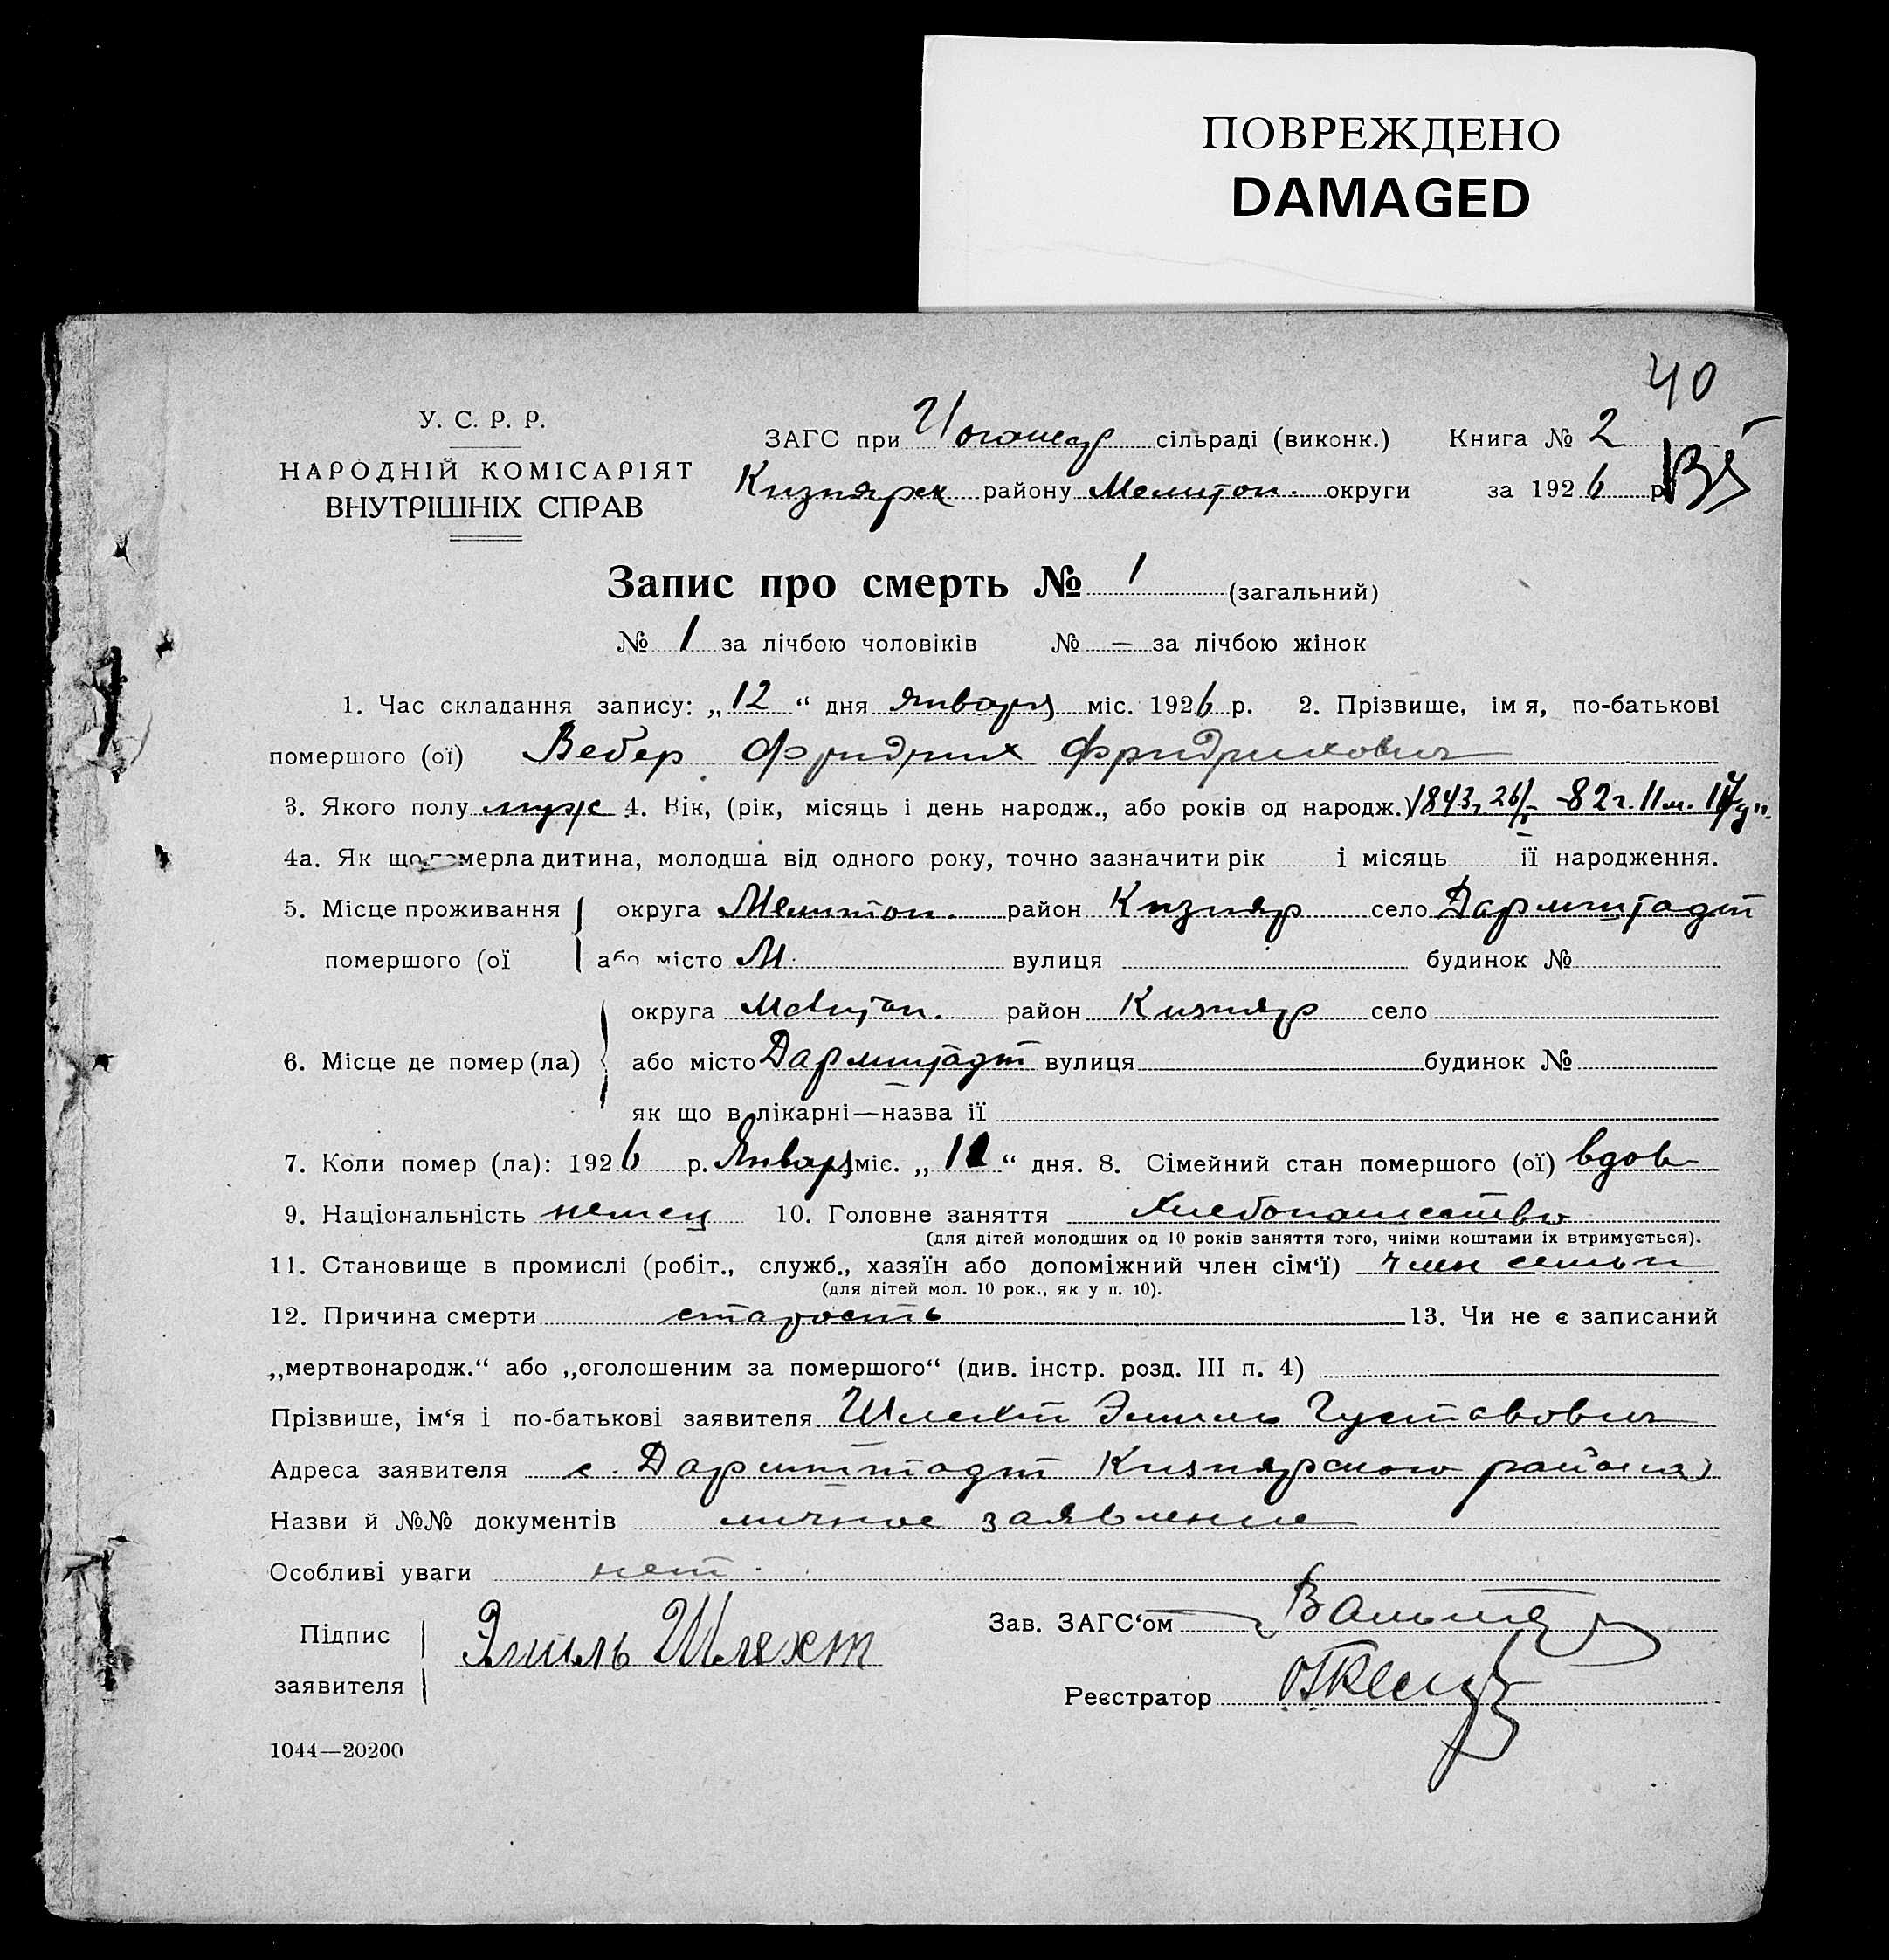 ПОВРЕЖДЕНО
DAMAGED
40
У. С. Р. Р.
НАРОДНІЙ КОМІСАРІЯТ
ВНУТРІШНІХ СПРАВ
ЗАГС при сільраді (виконк.) Книга № 2
Кизиярск району Мелитоп. округи за 1926 р.
Запис про смерть № 1 (загальний)
№ 1 за лічбою чоловіків № — за лічбою жінок
1. Час складання запису: „ 12 “ дня января міс. 1926 р. 2. Прізвище, імя, по-батькові
помершого (ої) Вебер Фридрих Фридрихович
3. Якого полу муж 4. Вік, (рік, місяць і день народж., або років од народж.) 1843, 26/I - 82 г. 11 м.
4а. Як що померла дитина, молодша від одного року, точно зазначити рік і місяць її народження.
5. Місце проживання округа Мелитоп. район Кизияр село Дармштадт
помершого (ої або місто М. вулиця будинок №
округа Мелитоп. район Кизияр село
6. Місце де помер (ла) або місто Дармштадт вулиця будинок №
як що в лікарні—назва її
7. Коли помер (ла): 1926 р. Января міс. „ “ дня. 8. Сімейний стан помершого (ої) вдов
9. Національність немец 10. Головне заняття хлебопашество
(для дітей молодших од 10 років заняття того, чиїми коштами їх втримується).
11. Становище в промислі (робіт., служб., хазяїн або допоміжний член сім‘ї) член семьи
(для дітей мол. 10 рок., як у п. 10).
12. Причина смерти старость 13. Чи не є записаний
„мертвонародж.“ або „оголошеним за помершого“ (див. інстр. розд. III п. 4)
Прізвише, ім‘я і по-батькові заявителя Шлехт Эмиль Густавович
Адреса заявителя с. Дармшттадт Кизиярского района
Назви й №№ документів личное заявление
Особливі уваги нет.
Підпис Эмиль Шлехт Зав. ЗАГС‘ом Вальтер
заявителя Реєстратор
1044—20200